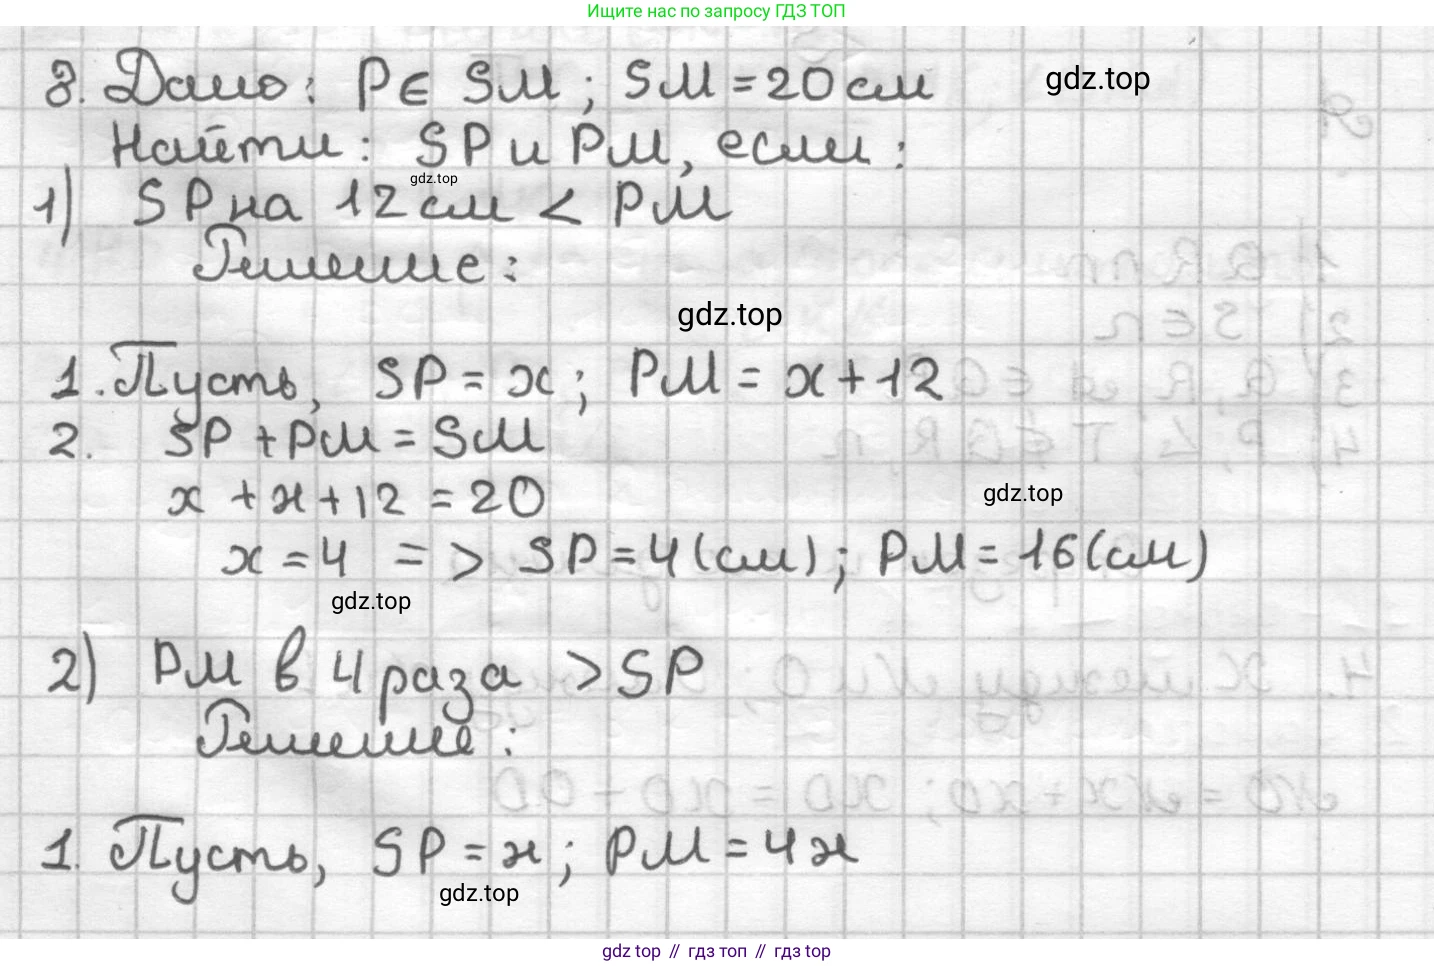 Ищите нас по запросу ГДЗ ТОП
8. Дано: P∈ SM; SM = 20 см
gdz.top
Найти: SP и PM, если:
gdz.top
1) SP на 12 см < PM
Решение:
gdz.top
1. Пусть, SP = x; PM = x + 12
2. SP + PM = SM
x + x + 12 = 20
gdz.top
x = 4 => SP = 4 (см); PM = 16 (см)
gdz.top
2) PM в 4 раза > SP
Решение:
1. Пусть, SP = x; PM = 4x
gdz.top
gdz top // гдз топ // gdz top